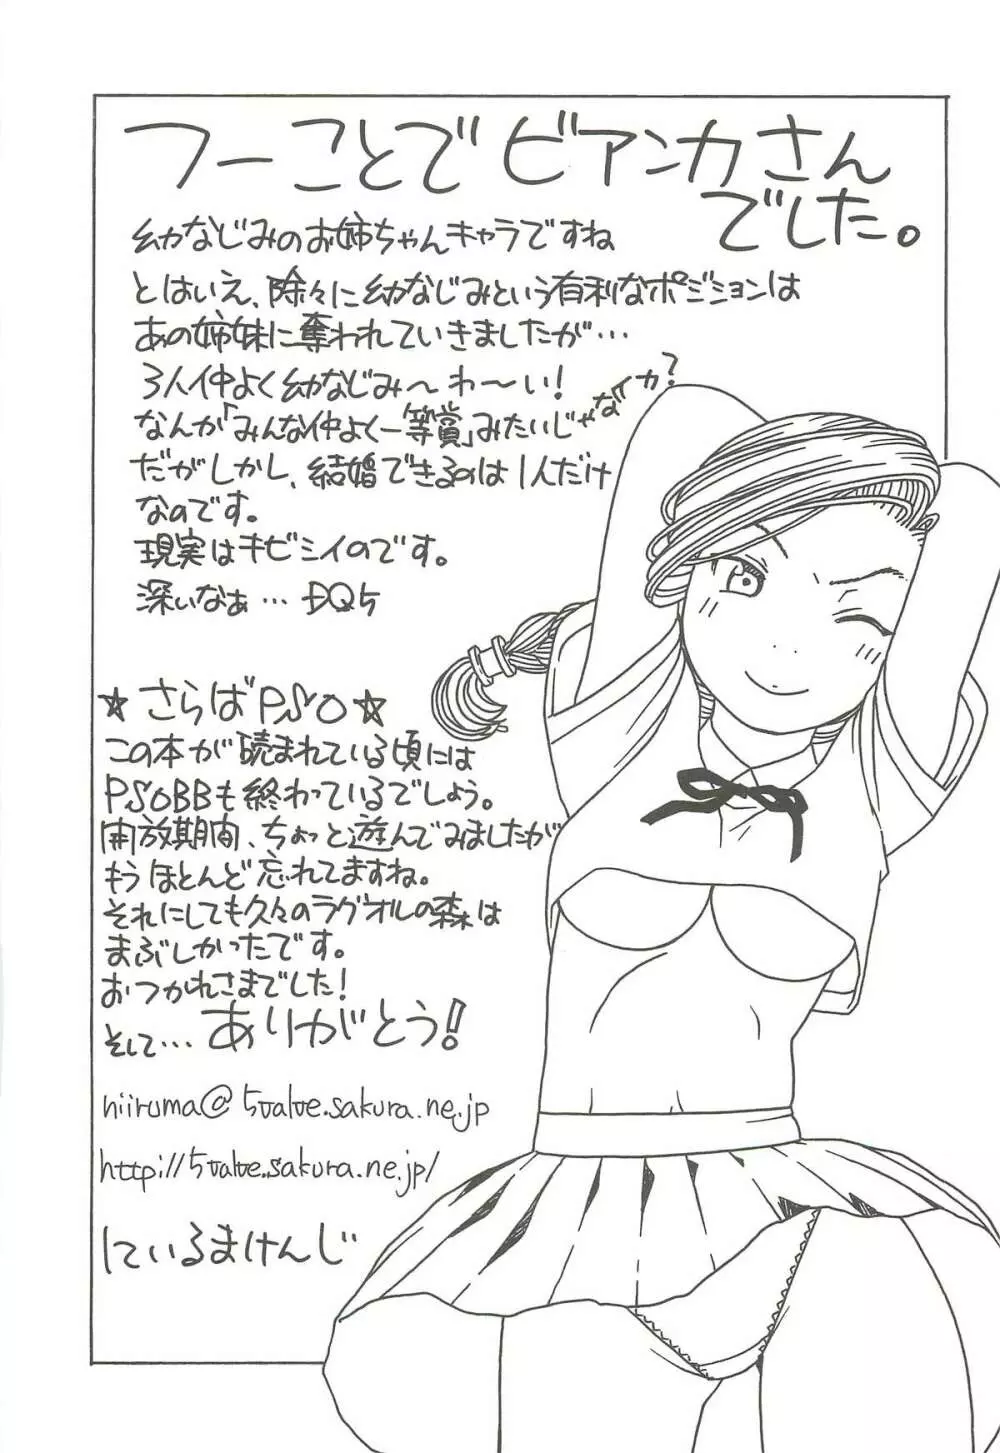 つーことでビアンカさん
でした。
幼なじみのお姉ちゃんキャラですね
とはいえ、除々に幼なじみという有利なポジションは
あの姉妹に奪われていきましたが…
3人仲よく幼なじみ〜わ〜い!
なんか「みんな仲よく一等賞」みたいじゃないか?
だがしかし、結婚できるのは1人だけ
なのです。
現実はキビシイのです。
深いなぁ…DQ5
☆さらばPSO☆
この本が読まれている頃には
PSOBBも終わっているでしょう。
開放期間、ちょっと遊んでみましたが
もうほとんど忘れてますね。
それにしても久々のラグオルの森は
まぶしかったです。
おつかれさまでした!
そして…ありがとう!
niiruma@5valve.sakura.ne.jp
http://5valve.sakura.ne.jp/
にいるまけんじ